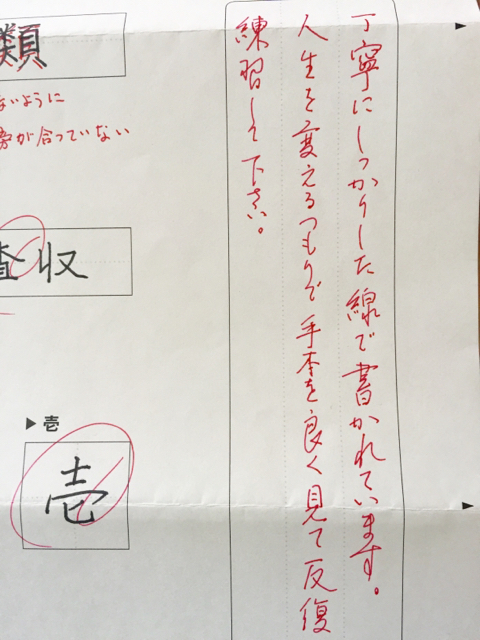 丁寧にしっかりした線で書かれています。
人生を変えるつもりで手本を良く見て反復
練習して下さい。
類
ないように
が合っていない
査収
▶壱
壱